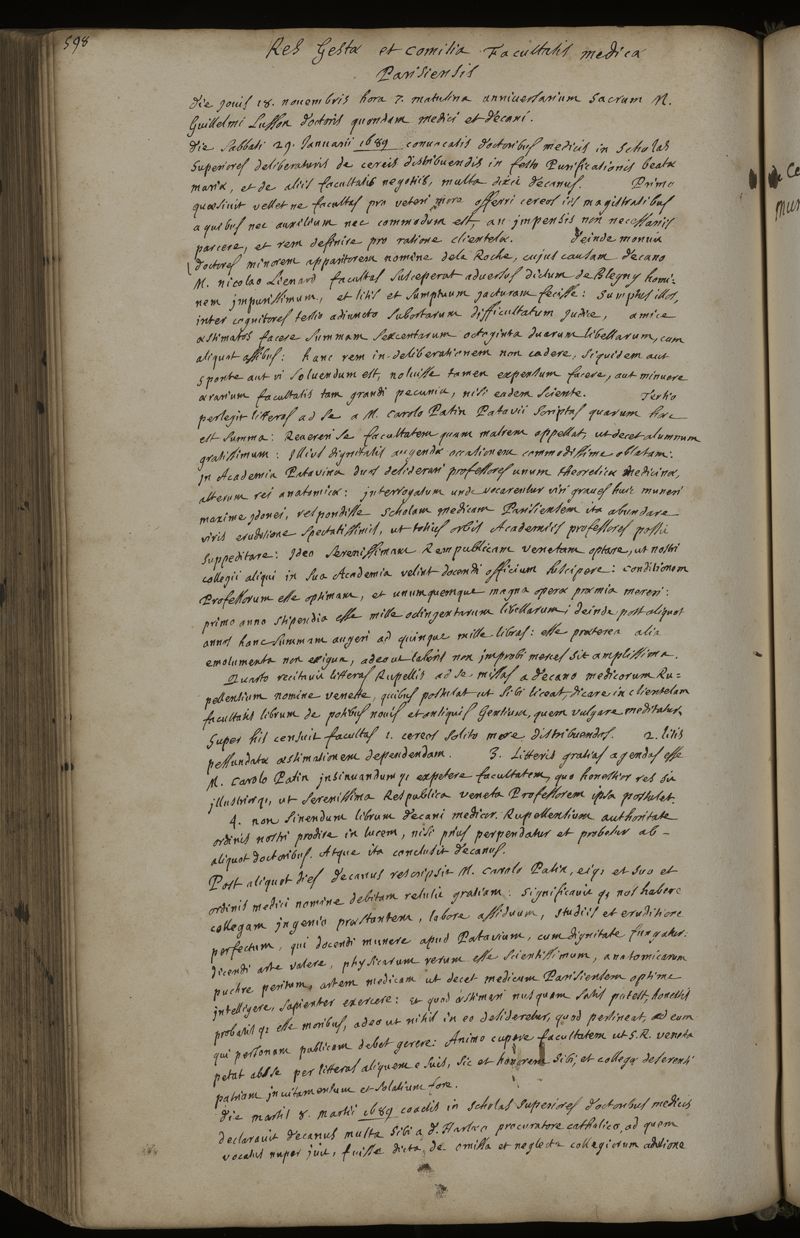 598
Res Gesta et comitia Facultatis medicæ
Parisiensis
die jouis 18. nouembris hora 7. matutina anniuersarium sacrum M.
Guillelmi Lusson doctoris quondam medici et decani.
die sabbati 29. Januarii 1689 conuocatis doctoribus medicis in scholas
superiores deliberaturis de cereis distribuendis in festo Purificationis beatæ
mariæ, et de aliis facultatis negotiis, multa dixit decanus. Primo
quæsiuit vellet ne facultas pro veteri more offerri cereos iis magistratibus
a quibus nec auxilium nec commodum est, an impensis non necessariis
parcere, et rem definire pro ratione clientelæ. deinde monuit
doctores minorem apparitorem nomine de la Roche, cujus causam decano
M. nicolao Lienard facultas susceperat aduersus dictum de Blegny homi-
nem impurissimum, et litis et sumptuum jacturam fecisse: sumptus illos,
inter cognitores tertio adiuncto subortarum difficultatum judice, amice
æstimatos facere summam sexcentarum octoginta duarum libellarum, cum
aliquot assibus: hanc rem in deliberationem non cadere, siquidem aut
sponte aut vi soluendum est, noluisse tamen expensum facere, aut minuere
ærarium facultatis tam grandi pecunia, nisi eadem sciente. Tertio
perlegit litteras ad se a M. Carolo Patin Patavii scriptas quarum hæc
est summa: Reuereri se facultatem quam matrem appellat, ut decet alumnum
gratissimum: Illius dignitatis augendæ occasionem commodissime oblatam:
in Academia Patavina duos desiderari professores unum theoreticæ medicinæ,
alterum rei anatomicæ: interrogatum unde vocarentur viri graues huic muneri
maxime idonei, respondisse scholam medicam Parisiensem ita abundare
viris eruditione spectatissimis, ut totius orbis Academiis professores possit
suppeditare: Ideo serenissimam Rempublicam venetam optare, ut nostri
collegii aliqui in sua Academia velint docendi officium suscipere: conditionem
Professorum esse optimam, et unumquemque magna operæ præmia mereri:
primo anno stipendia esse mille octingentarum libellarum; deinde post aliquot
annos hanc summam augeri ad quinque mille libras: esse præterea alia
emolumenta non exigua, adeo ut laboris non improbi merces sit amplissima.
Quarto recitauit litteras Rupellis ad se missas a decano medicorum Ru-
pellensium nomine venette, quibus postulat ut sibi liceat dicare in clientelam
facultatis librum de potibus nouis et antiquis Gentium, quem vulgare meditatur.
super his censuit facultas 1. cereos solito more distribuendos. 2. litis
pessundatæ æstimationem dependendam. 3. Litteris gratias agendas esse
M. Carolo Patin insinuandumq; expetere facultatem, quo honestior res sit
illustriorq;, ut serenissima Respublica veneta Professorem ipsa postulet.
4. non sinendum librum decani medicor. Rupellensium authoritate
ordinis nostri prodire in lucem, nisi prius perpendatur et probetur ab-
aliquot doctoribus. Atque ita conclusit decanus.
Post aliquot dies decanus rescripsit M. Carolo Patin, eiq; et suo et
ordinis medici nomine debitam retulit gratiam: significauit q; nos habere
collegam ingenio præstantem, labore assiduum, studiis et eruditione
perfectum, qui docendi munere apud Patavium, cum dignitate fungatur:
dicendi arte valere, physicarum rerum esse scientissimum, anatomicarum
puchre peritum, artem medicam ut decet medicum Parisiensem optime
intelligere, sapienter exercere: et quod æstimari nusquam satis potest, honestis
probatisq; esse moribus, adeo ut nihil in eo desideretur, quod pertineat, ad eum
qui personam publicam debet gerere: Animo cupere facultatem ut S.R. veneta
petat ab se per litteras aliquem e suis, sic et honorem sibi, et collegæ deserenti
patriam inuitamentum et solatium fore.
die martis 8. martii 1689 coactis in scholas superiores doctoribus medicis
declarauit decanus multa sibi a d. Harlæo procuratore catholico, ad quem
vocatus nuper iuit, fuisse dicta, de omissa et neglecta collegiorum aditione